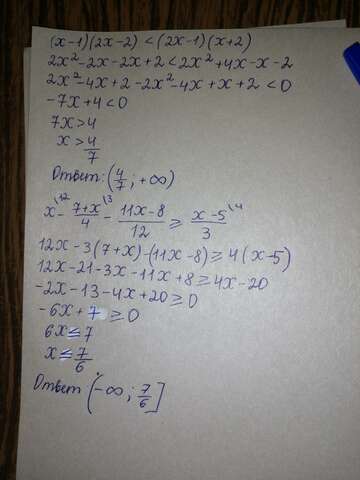 (x-1)(2x-2) < (2x-1)(x+2)
2x²-2x-2x+2 < 2x²+4x-x-2
2x²-4x+2-2x²-4x+x+2 < 0
-7x+4 < 0
7x > 4
x > 4/7
Ответ: (4/7; +∞)
x\12 - 7+x/4\3 - 11x-8/12 ≥ x-5/3\4
12x-3(7+x)-(11x-8) ≥ 4(x-5)
12x-21-3x-11x+8 ≥ 4x-20
-2x-13-4x+20 ≥ 0
-6x+7 ≥ 0
6x ≤ 7
x ≤ 7/6
Ответ (-∞; 7/6]